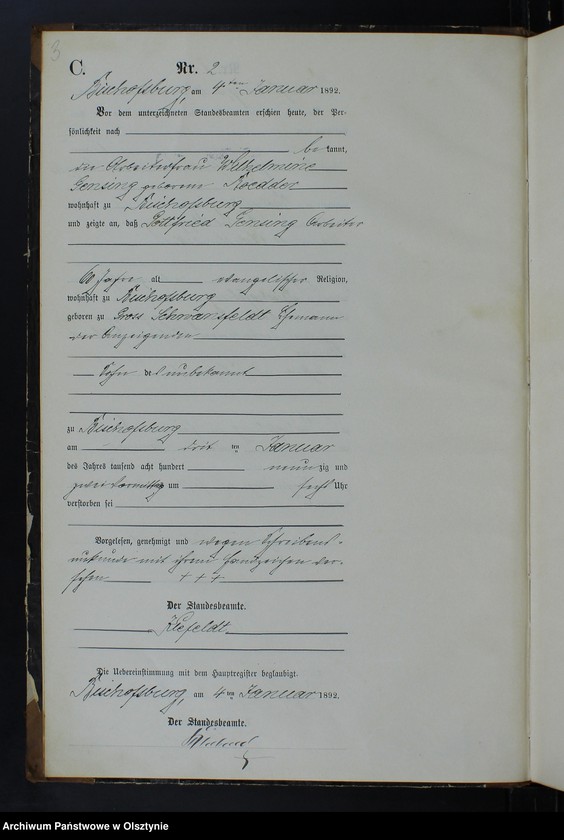 3
C. Nr. 2
Bischofsburg, am 4ten Januar 1892.
Vor dem unterzeichneten Standesbeamten erschien heute, der Per-
sönlichkeit nach
be kannt,
die Arbeiterfrau Wilhelmine
Gensing geborene Roedder
wohnhaft zu Bischofsburg
und zeigte an, daß Gottfried Gensing Arbeiter
60 Jahre alt evangelischer Religion,
wohnhaft zu Bischofsburg
geboren zu Gross Schwansfeldt Ehemann
der Anzeigenden
Sohn de unbekannt
zu Bischofsburg
am drit ten Januar
des Jahres tausend acht hundert neun zig und
zwei Vormittag um sechs Uhr
verstorben sei
Vorgelesen, genehmigt und wegen Schreibens-
unkunde mit ihrem Handzeichen ver-
sehen +++
Der Standesbeamte.
Die Uebereinstimmung mit dem Hauptregister beglaubigt.
Bischofsburg, am 4ten Januar 1892.
Der Standesbeamte.
Archiwum Państwowe w Olsztynie